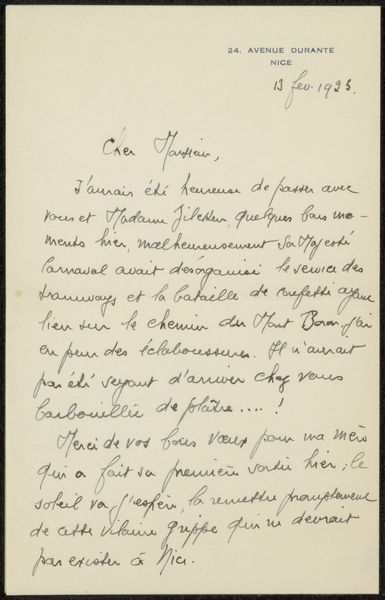 24, AVENUE DURANTE
NICE
13 fev. 1923.
Cher Monsieur,
J'aurais été heureuse de passer avec
vous et Madame Zilcken, quelques bons mo-
ments hier, malheureusement Sa Majesté
Carnaval avait désorganisé le service des
tramways et la bataille de confetti ayant
lieu sur le chemin du Mont Boron, j'ai
eu peur des éclaboussures. Il n'aurait
pas été seyant d'arriver chez vous
barbouillée de plâtre....!
Merci de vos bons vœux pour ma mère
qui a fait sa première sortie hier; le
soleil va, j'espère, la remettre promptement
de cette vilaine grippe qui ne devrait
pas exister à Nice.